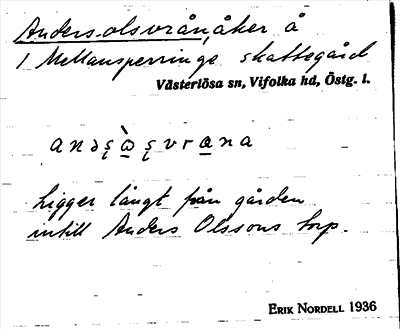 Andersolsvrån, åker å
1 Mellansperringe skattegård
Västerlösa sn, Vifolka hd, Östg. l.
Ligger långt från gården
intill Anders Olssons torp.
ERIK NORDELL 1936